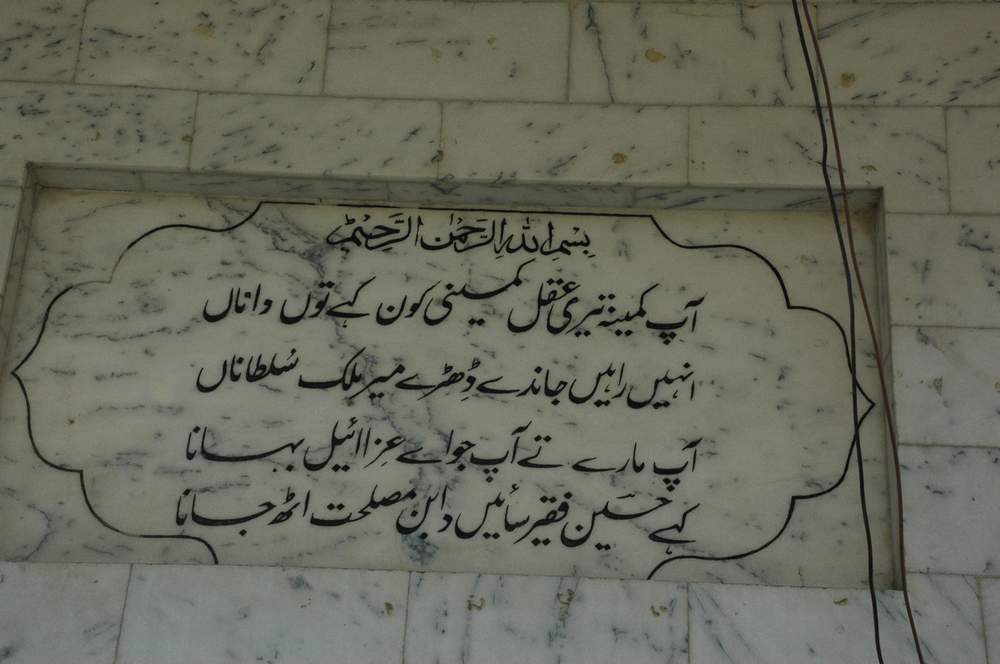 بِسْمِ اللهِ الرَّحْمٰنِ الرَّحِيْمِ
آپ کمینہ تیری عقل کمینی کون کہے توں داناں
انہیں راہیں جاندے ڈِھڑے میر ملک سُلطاناں
آپ مارے تے آپ جواے عزرائیل بہانا
کہے حسین فقیر سائیں دا بن مصلحت اٹھ جانا